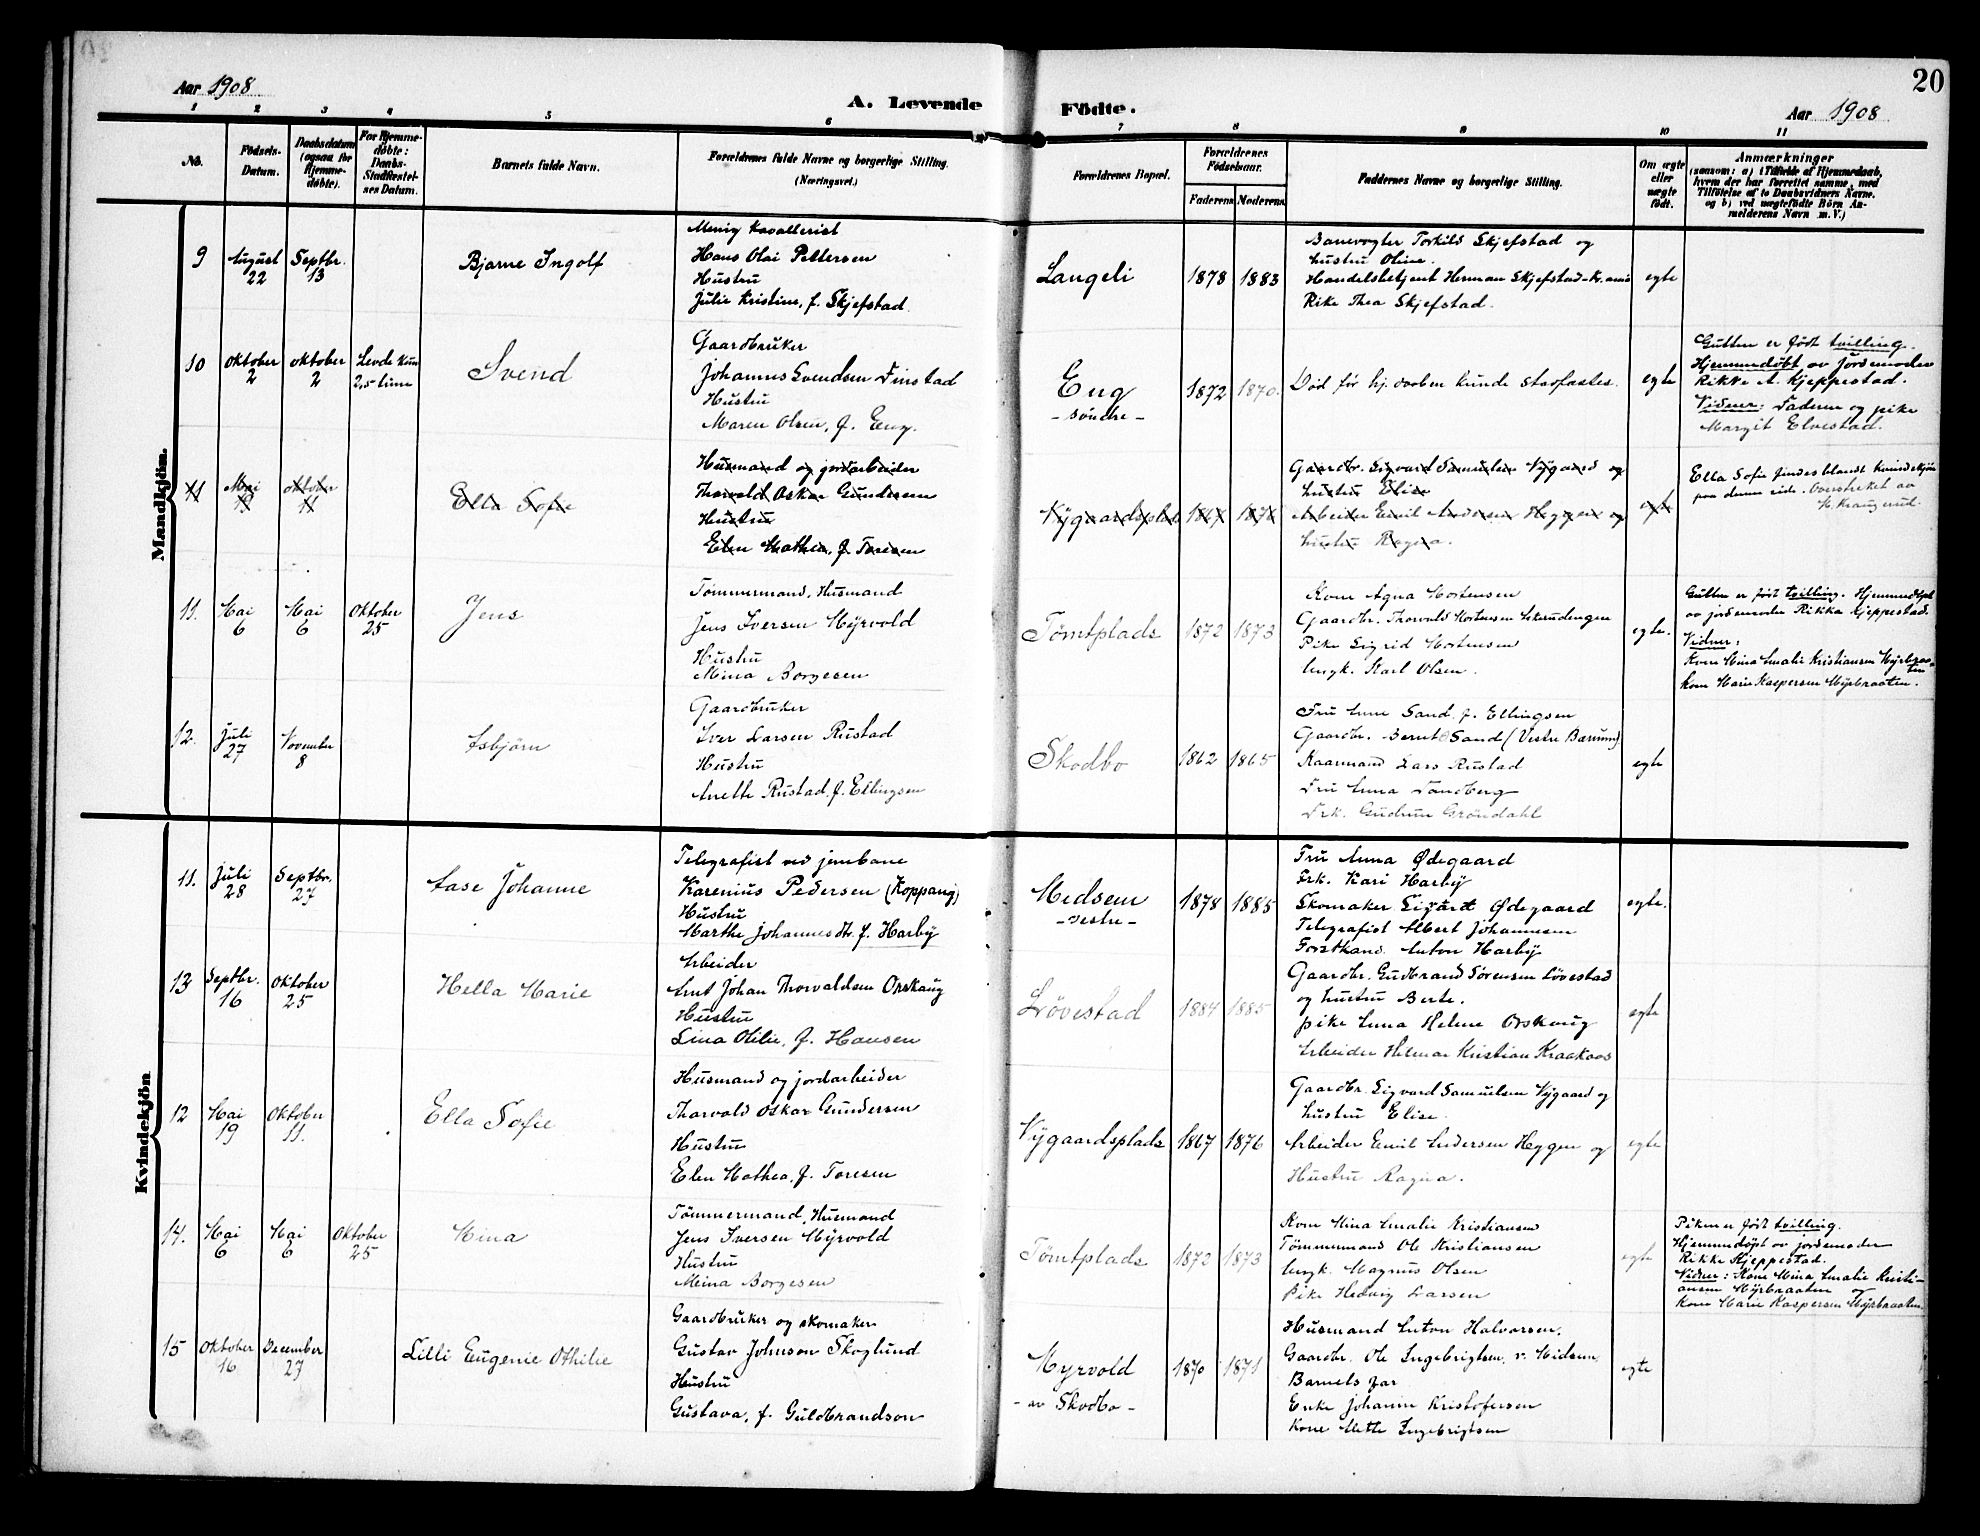 20
Aar 1908
A. Levende Födte.
Aar 1908
1 2 3 4 5 6 7 8 9 10 11
No.
Födsels-
Datum.
Daabsdatum
(ogsaa for
Hjemme-
døbte).
For Hjemme-
døbte:
Daabs-
Stadfæstel-
ses Datum.
Barnets fulde Navn.
Forældrenes fulde Navne og borgerlige Stilling.
(Næringsvei.)
Forældrenes Bopæl.
Forældrenes
Födselsaar.
Faderens Moderens
Faddernes Navne og borgerlige Stilling.
Om ægte
eller
uægte
født.
Anmærkninger
(saasom: a) i Tilfælde af Hjemmedaab,
hvem der har forrettet samme, med
Tilföielse af to Daabsvidners Navne,
og b) ved uægtefödte Börn An-
melderens Navn m. V.)
Mandkjön.
9
August
22
Septbr.
13
Bjarne Ingolf
Menig kavallerist
Hans Olai Pettersen
Hustru
Julie Kristine, f. Skjefstad
Langeli
1878
1883
Banevogter Torkild Skjefstad og
hustru Oline.
Handelsbetjent Herman Skjefstad-Kr.ania
Rike Thea Skjefstad.
egte
10
Oktober
2
Oktober
2
Levde kun
2,5 time
Svend
Gaardbruker
Johannes Svendsen Finstad
Hustru
Maren Olsen, f. Eng.
Eng
- søndre -
1872
1870.
Død før hj. daaben kunde stadfæstes.
egte
Gutten er født tvilling.
Hjemmedøbt av Jordemoder
Rikke A. Kjeppestad.
Vidner: Faderen og pike
Margit Elvestad.
11
Mai
19
oktober
11
Ella Sofie
Husmand og jordarbeider
Thorvald Oskar Gundersen
Hustru
Elen Mathea, f. Toresen
Nygaardsplads
1867
1876
Gaardbr. Sigvard Samuelsen Nygaard og
hustru Elise
Arbeider Emil Andersen Heggen og
hustru Ragna.
egte
Ella Sofie findes blandt kvindekjøn
paa denne side. Overstreket av
H. Krangerud.
11.
Mai
6
Mai
6
Oktober
25
Jens
Tømmermand, Husmand
Jens Iversen Myrvold
Hustru
Mina Borgesen
Tømtplads
1872
1873
Kone Agna Mortensen
Gaardbr. Thorvald Mortensen Skrudengen
Pike Sigrid Mortensen
Ungk. Karl Olsen.
egte.
Gutten er født tvilling. Hjemmedøbt
av jordemoder Rikka Kjeppestad.
Vidner:
Kone Mina Amalie Kristiansen Myrbraa-
ten
Kone Marie Kaspersen Myrbraaten.
12.
Juli
27
November
8
Asbjørn
Gaardbruker
Iver Larsen Rustad
Hustru
Anette Rustad, f. Ellingsen
Skodbo
1862
1865
Fru Anne Sand, f. Ellingsen
Gaardbr. Bernt Sand (Vestre Bærum)
Kaarmand Lars Rustad
Fru Anna Tandberg
Frk. Gudrun Grøndahl
egte
Kvindekjön
11.
Juli
28
Septbr.
27
Aase Johanne
Telegrafist ved jernbane
Karenius Pedersen (Koppang)
Hustru
Marthe Johannesdtr. f. Harby
Midsem
- vestre -
1878
1885
Fru Anna Ødegaard
Frk. Kari Harby
Skomaker Sigard Ødegaard
Telegrafist Albert Johannesen
Forstkand. Anton Harby
egte.
13
Septbr.
16
Oktober
25
Hella Marie
Arbeider
Arnt Johan Thorvaldsen Orskaug
Hustru
Lina Otilie, f. Hansen
Løvestad
1884
1885
Gaardbr. Gudbrand Sørensen Løvestad
og hustru Berte.
pike Anna Helene Orskaug
Arbeider Helmar Kristian Kraakaas
egte
12
Mai
19
Oktober
11.
Ella Sofie
Husmand og jordarbeider
Thorvald Oskar Gundersen
Hustru
Elen Mathea, f. Toresen
Nygaardsplads
1867
1876
Gaardbr. Sigvard Samuelsen Nygaard og
hustru Elise.
Arbeider Emil Andersen Heggen og
Hustru Ragna.
egte
14.
Mai
6
Mai
6
Oktober
25
Mina
Tømmermand, Husmand
Jens Iversen Myrvold
Hustru
Mina Borgesen
Tømtplads
1872
1873
Kone Mina Amalie Kristiansen
Tømmermand Ole Kristiansen
Ungk. Magnus Olsen
Pike Hedvig Larsen
egte
Piken er født tvilling.
Hjemmedøpt av jordemoder
Rikke Kjeppestad.
Vidner: Kone Mina Amalie Kristi-
ansen Myrbraaten og
Kone Marie Kaspersen Myrbraaten.
15
Oktober
16
December
27
Lilli Eugenie Othilie
Gaardbruker og skomaker
Gustav Johnson Skoglund
Hustru
Gustava, f. Guldbrandson
Myrvold
- av Skodbo -
1870
1871
Husmand Anton Halvorsen.
Gaardbr. Ole Ingebrigtsen, v. Midsem.
Barnets far
Enke Johanne Kristofersen
Kone Mette Ingebrigtsen
egte